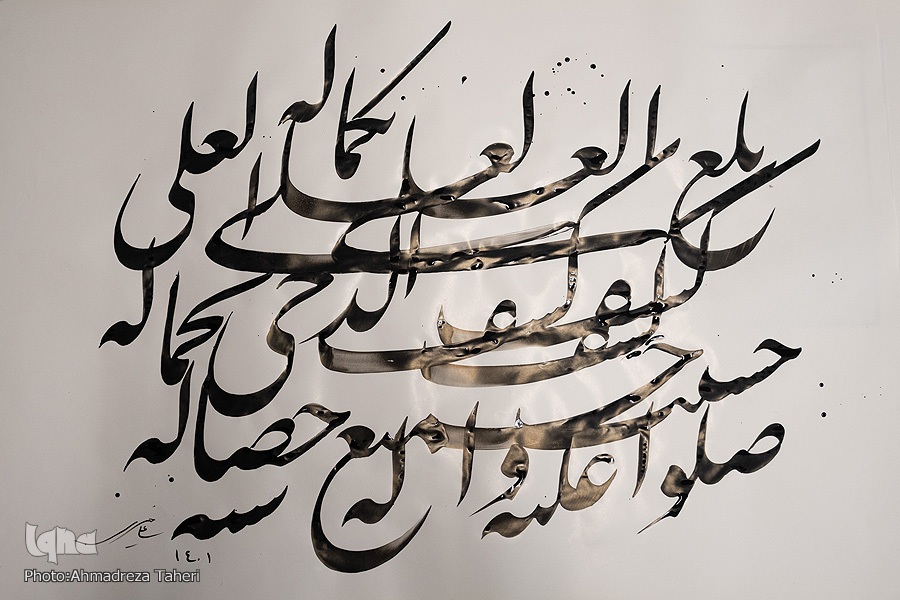 بلغ العلی العلی العلی بکماله
کشف کشف الدجی بجماله
حسنت جمیع خصاله
صلوا علیه و اله
۱۴۰۱
iqna
Photo:Ahmadreza Taheri